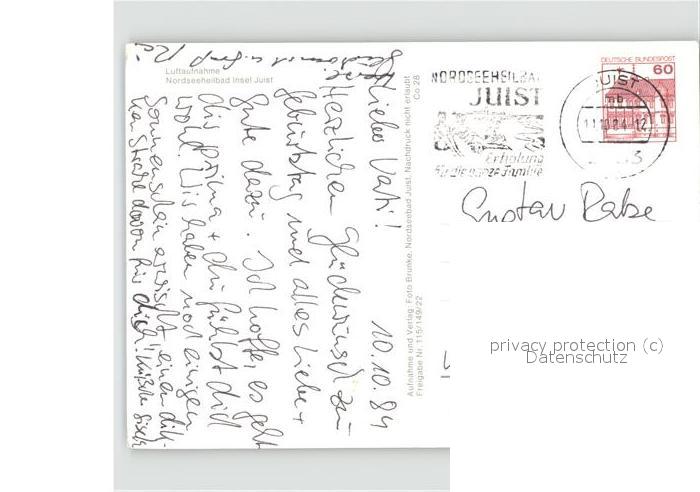 Luftaufnahme
Nordseeheilbad Insel Juist
10.10.84
Lieber Vati!
Herzlichen Glückwunsch zum
Geburtstag und alles Liebe +
Gute dazu. Ich hoffe, es geht
dir prima + du fühlst dich
wohl. Wir haben noch einigen
Sonnenschein erwischt, einen dik-
ken Strahl davon für dich!
Aufnahme und Verlag: Foto Brunke, Nordseebad Juist, Nachdruck nicht erlaubt
Freigabe Nr. 115/149/22
Co 28
NORDSEEHEILBAD
JUIST
Erholung
für die ganze Familie
JUIST
mb
11.10.84-12
DEUTSCHE BUNDESPOST
60
Gustav Rabe
privacy protection (c)
Datenschutz